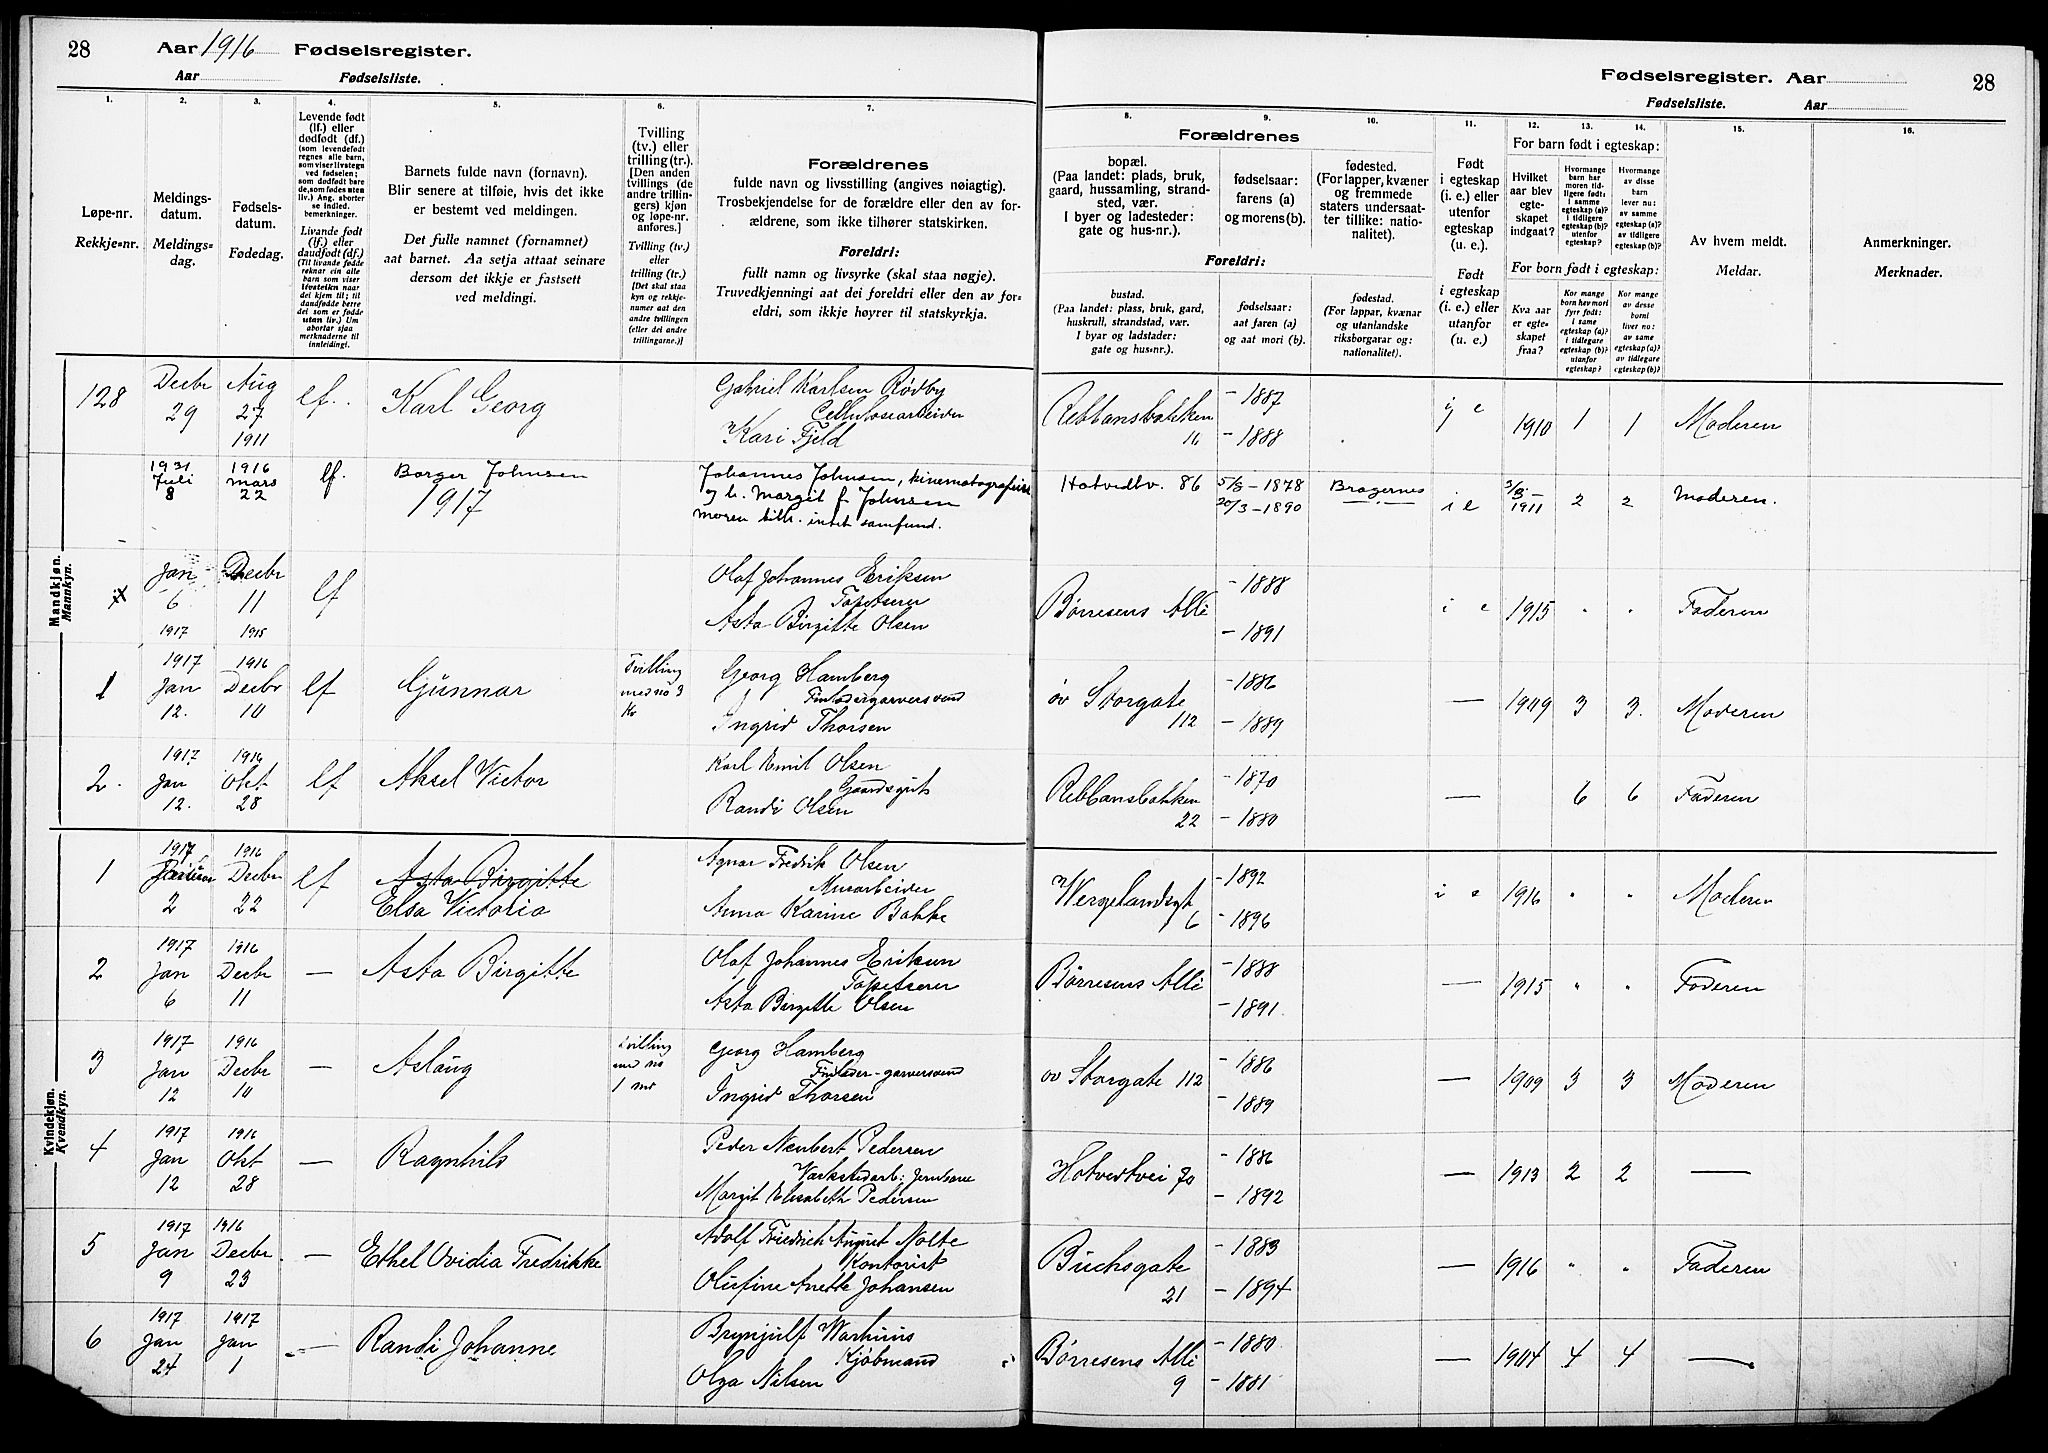 28
Aar 1916 Fødselsregister.
Aar
Fødselsliste.
Fødselsregister. Aar
28
Fødselsliste.
Aar
1.
Løpe-nr.
Rekkje-nr.
2.
Meldings-
datum.
Meldings-
dag.
3.
Fødsels-
datum.
Fødedag.
4.
Levende født
(lf.) eller
dødfødt (df.)
(som levendefødt
regnes alle barn,
som viser livstegn
ved fødselen;
som dødfødt bare
de, som fødes uten
liv.) Ang. aborter
se indled.
bemerkninger.
Livande født
(lf.) eller
daudfødt (df.)
(Til livande fødde
reknar ein alle
born som viser
livsteikn naar
dei kjem til; til
daudfødde berre
dei som er fødde
utan liv.) Um
abortar sjaa
merknaderne til
innleidingi.
5.
Barnets fulde navn (fornavn).
Blir senere at tilføie, hvis det ikke
er bestemt ved meldingen.
Det fulle namnet (fornamnet)
aat barnet. Aa setja attaat seinare
dersom det ikkje er fastsett
ved meldingi.
6.
Tvilling
(tv.) eller
trilling (tr.).
[Den anden
tvillings (de
andre trillin-
gers) kjøn
og løpe-nr.
anføres.]
Tvilling (tv.)
eller
trilling (tr.)
[Det skal staa
kyn og rekkje-
numer aat den
andre tvillingen
(eller dei andre
trillingarne.)]
7.
Forældrenes
fulde navn og livsstilling (angives nøiagtig).
Trosbekjendelse for de forældre eller den av for-
ældrene, som ikke tilhører statskirken.
Foreldri:
fullt namn og livsyrke (skal staa nøgje).
Truvedkjenningi aat dei foreldri eller den av for-
eldri, som ikkje høyrer til statskyrkja.
8.
Forældrenes
bopæl.
(Paa landet: plads, bruk,
gaard, hussamling, strand-
sted, vær.
I byer og ladesteder:
gate og hus-nr.).
Foreldri:
bustad.
(Paa landet: plass, bruk, gard,
huskrull, strandstad, vær.
I byar og ladstader:
gate og hus-nr.).
9.
fødselsaar:
farens (a)
og morens (b).
fødselsaar:
aat faren (a)
og aat mori (b).
10.
fødested.
(For lapper, kvæner
og fremmede
staters undersaat-
ter tillike: natio-
nalitet).
fødestad.
(For lappar, kvænar
og utanlandske
riksborgarar og:
nationalitet).
11.
Født
i egteskap
(i. e.) eller
utenfor
egteskap
(u. e.).
Født
i egteskap
(i. e.) eller
utanfor
(u. e.)
For barn født i egteskap:
12.
Hvilket
aar blev
egte-
skapet
indgaat?
13.
Hvormange
barn har
moren tid-
ligere født:
i samme
egteskap (a)?
i tidligere
egteskap (b)?
utenfor
egteskap?
14.
Hvormange
av disse
barn
lever nu:
av samme
egteskap (a)?
av tidligere
egteskap (b)?
For born født i egteskap:
Kva aar
er egte-
skapet
fraa?
Kor mange
born hev mori
fyrr født:
i same
egteskap (a)?
i tidlegare
egteskap (b)?
utanfor
egteskap?
Kor mange
av desse
borni
liver no:
av same
egteskap (a)?
av tidlegare
egteskap (b)?
15.
Av hvem meldt.
Meldar.
16.
Anmerkninger.
Merknader.
Mandkjøn.
Mannkyn.
128 Decbr 29 Aug 27 1911 lf. Karl Georg Gabriel Karlsen Rødby Cellulosearbeider Kari Fjeld Rebbansbakken 16 - 1887 - 1888 i e 1910 1 1 Moderen
1931 Juli 8 1916 mars 22 lf. Borger Johnsen Johannes Johnsen, kinematografeier og h. Margit f. Johnsen moren tilh. intet samfund. Hotvedtv. 86 5/8 - 1878 20/3 - 1890 Bragernes i e 1911 2 2 Moderen.
1917
Jan 6 1917 Decbr 11 1915 lf Olaf Johannes Eriksen Tapetserer Asta Birgitte Olsen Børresens Alle - 1888 - 1891 i e 1915 " " Faderen
1 1917 Jan 12. 1916 Decbr 10 lf Gunnar Tvilling med no 3 Kv Georg Hamberg Finlædergarversvend Ingrid Thorsen øv Storgate 112 - 1886 - 1889 — 1909 3 3. Moderen
2. 1917 Jan 12. 1916 Okt 28 lf Aksel Victor Karl Emil Olsen Gaardsgut Randi Olsen Rebbansbakken 22 - 1870 - 1880 — 6 6 Faderen
Kvindekjøn.
Kvendkyn.
1 1917 Januar 2 1916 Decbr 22 lf Asta Birgitte Elsa Victoria Agnar Fredrik Olsen Murarbeider Anna Karine Bakke Wergelandsgt 6 - 1892 - 1896 i e 1916 " " Moderen
2 1917 Jan 6 1916 Decbr 11 — Asta Birgitte Olaf Johannes Eriksen Tapetserer Asta Birgitte Olsen Børresens Alle - 1888 - 1891. — 1915 " " Faderen
3 1917 Jan 12 1916 Decbr 10 — Aslaug Tvilling med no 1 M Georg Hamberg Finlæder-garversvend Ingrid Thorsen øv Storgate 112 - 1886 - 1889 — 1909 3 3 Moderen
4 1917 Jan 12 1916 Okt 28 — Ragnhild Peder Neubert Pedersen Værkstedarb: Jernbane Margit Elisabeth Pedersen Hotvedtvei 70 - 1886 - 1892 — 1913 2 2 —
5 1917 Jan 9 1916 Decbr 23 — Ethel Ovidia Fredrikke Adolf Friedrich August Nolte Kontorist Olufine Anette Johansen Buchsgate 21 - 1883 - 1894 — 1916 " " Faderen
6 1917 Jan 24 1917 Jan 1 — Randi Johanne Brynjulf Warhuus Kjøbmand Olga Nilsen Børresens Alle 9 - 1880 - 1881 — 1904 4 4 —